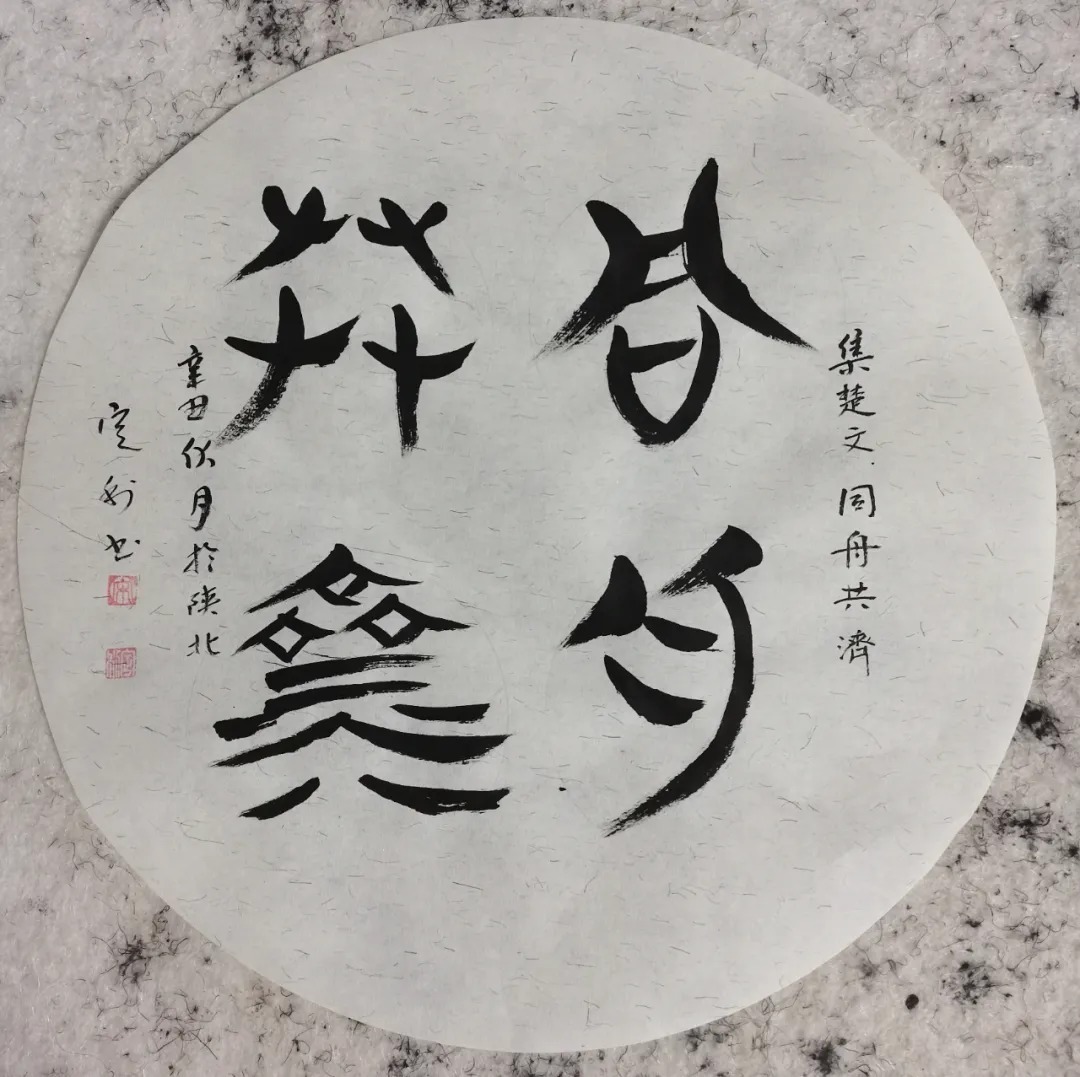 集楚文 同舟共濟
同舟
共濟
辛丑伏月於陝北
书